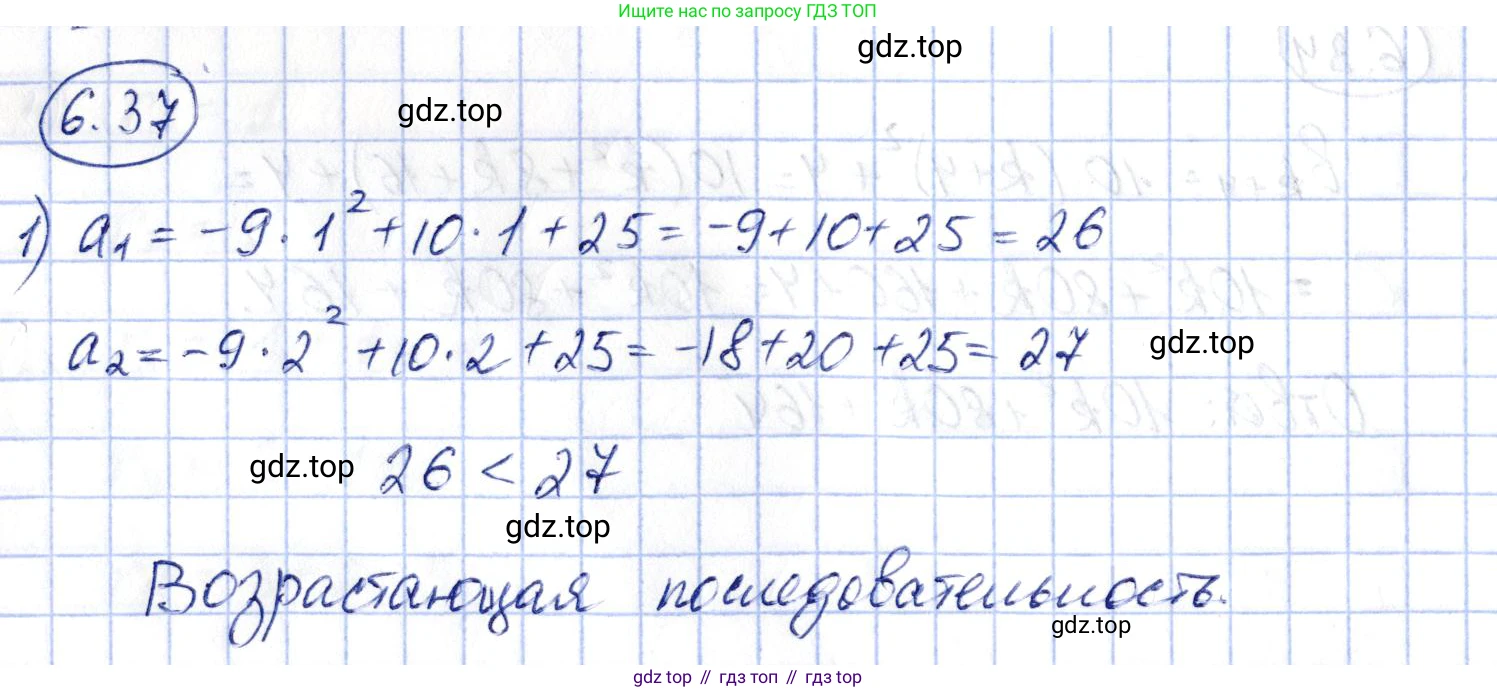 Ищите нас по запросу ГДЗ ТОП
gdz.top
6.37
gdz.top
1) a₁ = -9 · 1² + 10 · 1 + 25 = -9 + 10 + 25 = 26
a₂ = -9 · 2² + 10 · 2 + 25 = -18 + 20 + 25 = 27
gdz.top
gdz.top
26 < 27
gdz.top
Возрастающая последовательность.
gdz.top
gdz top // гдз топ // гдз top